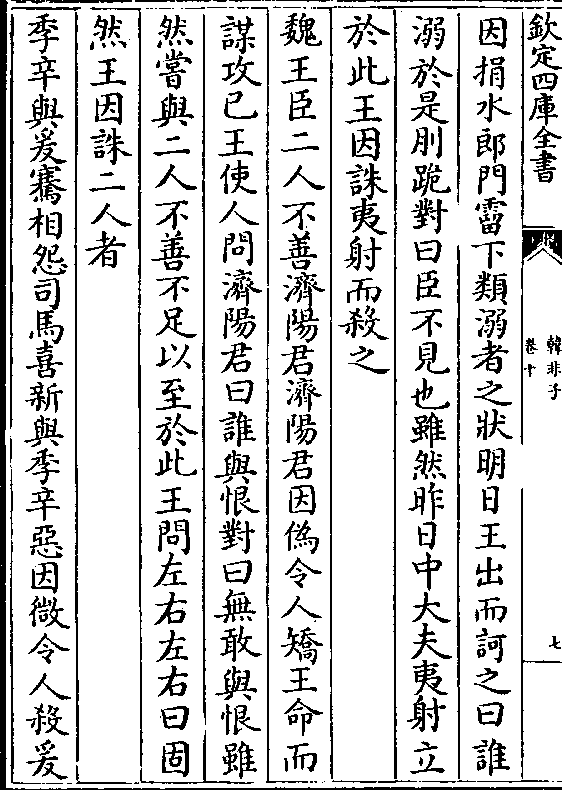 欽定四庫全書
韓非子
卷十
七
因捐水郎門霤下類溺者之狀明日王出而訶之曰誰
溺於是刖跪對曰臣不見也雖然昨日中大夫夷射立
於此王因誅夷射而殺之
魏王臣二人不善濟陽君濟陽君因偽令人矯王命而
謀攻已王使人問濟陽君曰誰與恨對曰無敢與恨雖
然嘗與二人不善不足以至於此王問左右左右曰固
然王因誅二人者
季辛與爰騫相怨司馬喜新與季辛惡因微令人殺爰